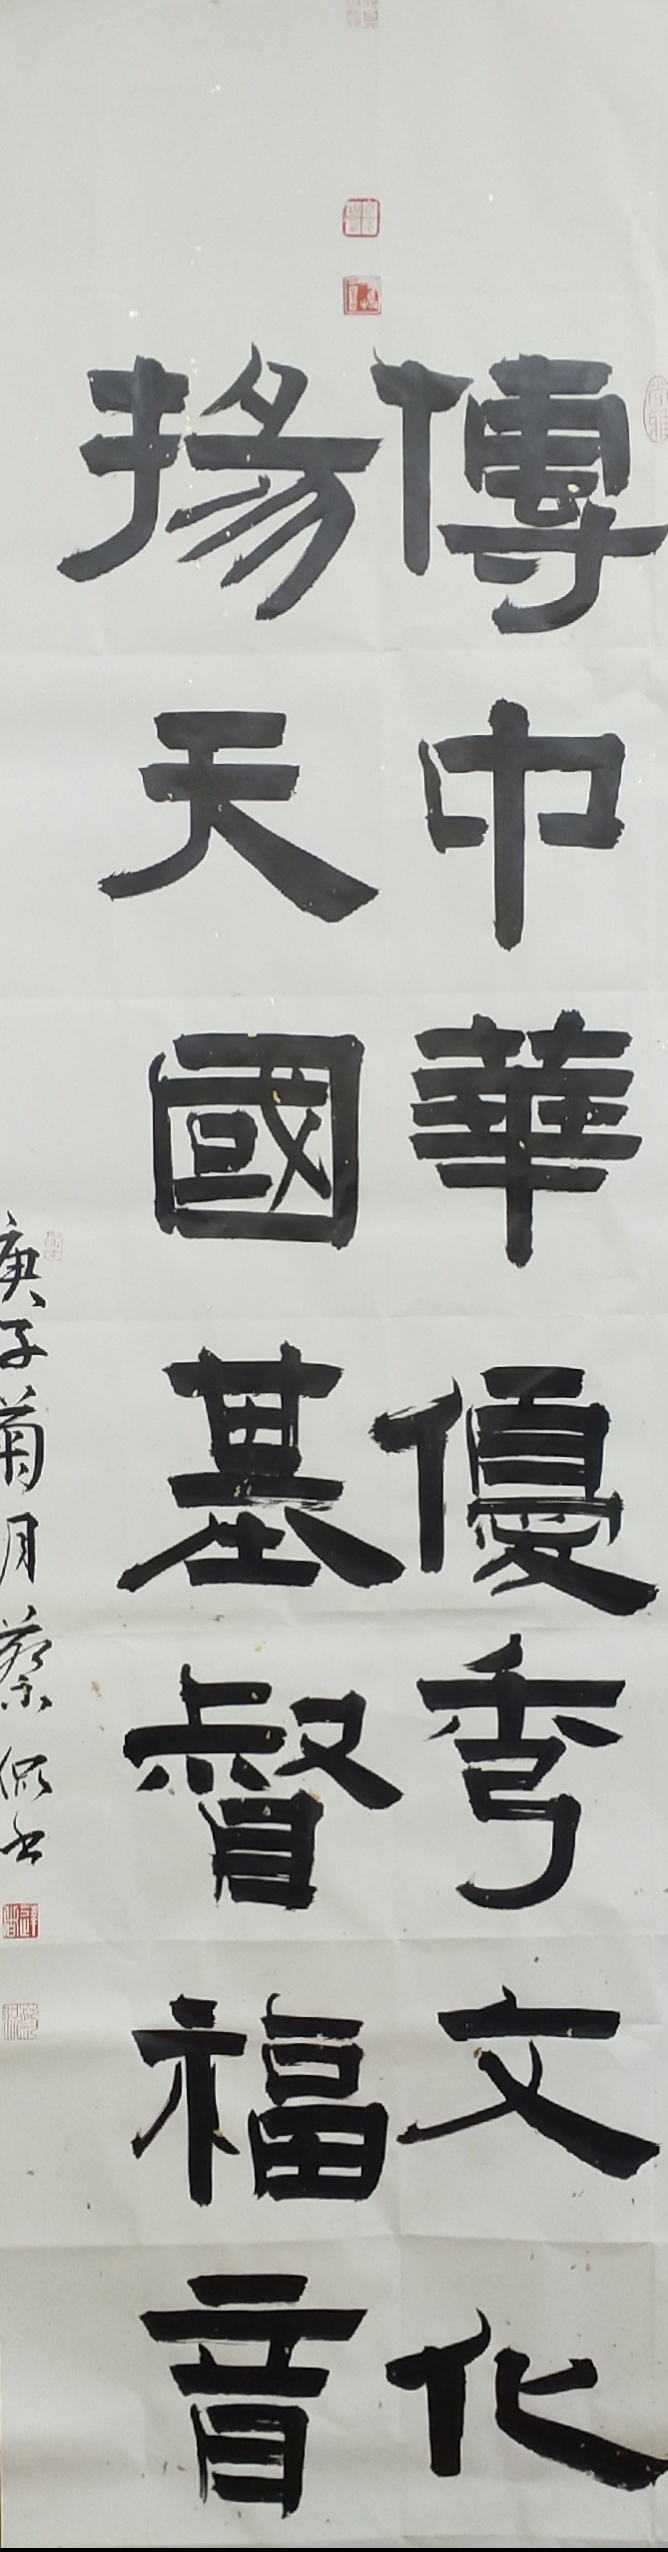 傳中華優秀文化
揚天國基督福音
庚子菊月蔡侃書